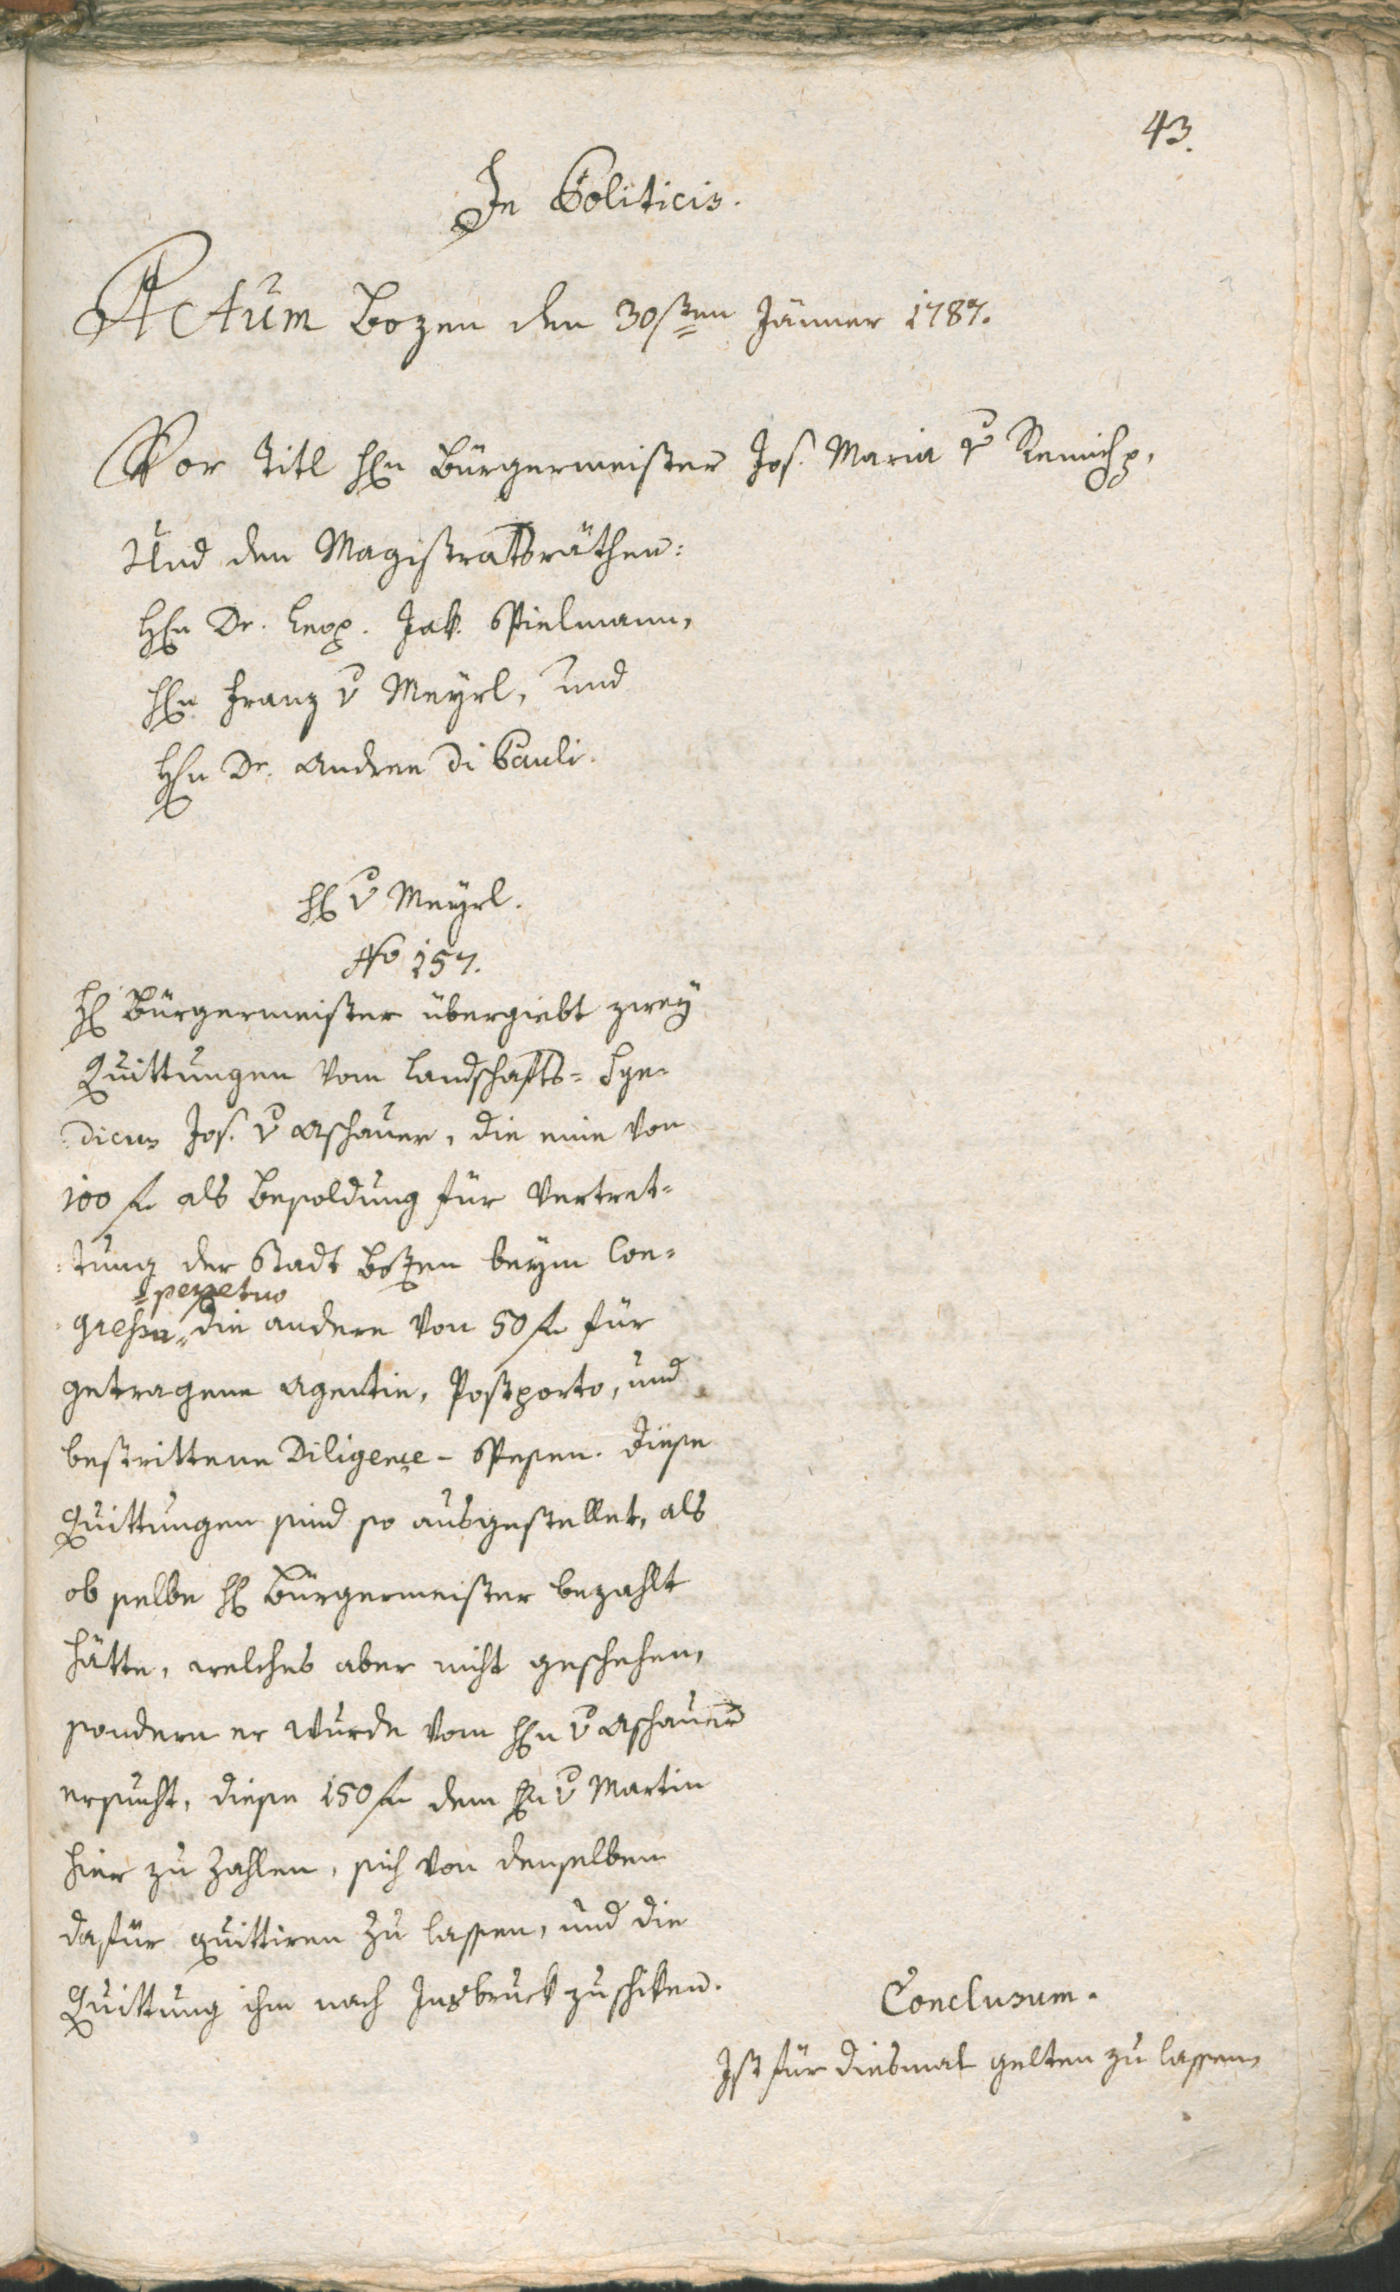 43.
In Politicis.
Actum Bozen den 30sten Jänner 1787.
Vor Titl Hℓn Bürgermeister Jos. Maria v Remich ꝛ.
Und den Magistratsräthen:
Hℓn Dr. Leop. Jak. Spielmann,
Hℓn Franz v Meyrl, und
Hℓn Dr. Andree Di Pauli.
Hℓ v Meyrl.
No 157.
Hℓ Bürgermeister übergiebt zwey
Quittungen vom Landschafts-Syn-
dicus Jos. v Aschauer, die eine von
100 f. als Besoldung für Vertret-
tung der Stadt Bozen beym Con-
=perpetuo
gresse= die andere von 50 f. für
getragene Agentie, Postporto, und
bestrittene Diligence-Spesen. Diese
Quittungen sind so ausgestellet, als
ob selbe Hℓ Bürgermeister bezahlt
hätte, welches aber nicht geschehen,
sondern er wurde vom Hℓn v Aschauer
ersucht, diese 150 f. dem Hℓn v Martin
hier zu zahlen, sich von denselben
dafür quittiren zu lassen, und die
Quittung ihm nach Insbruck zuschiken.
Conclusum.
Ist für diesmal gelten zu lassen,